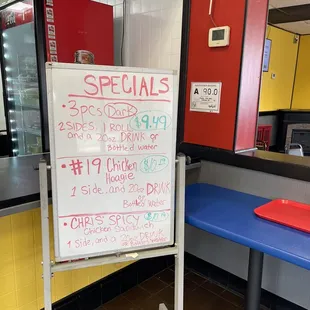 SPECIALS
3PCS Dark
2 SIDES, 1 ROLL $9.49
and a 20oz DRINK or
Bottled water
#19 Chicken
Hoagie
1 Side, and 20oz DRINK
or Bottled water
CHRIS' SPICY
Chicken Sandwich
1 Side, and a 20oz DRINK
A 90.0